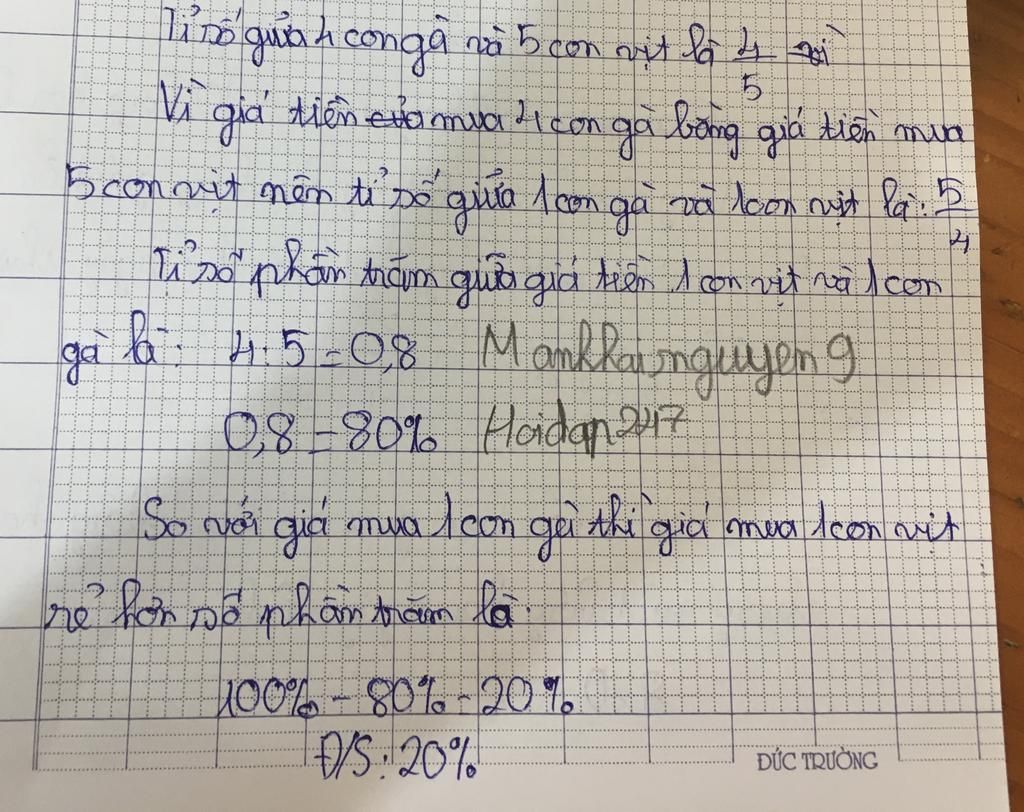 Tỉ số giữa 4 con gà và 5 con vịt là 4/5
Vì giá tiền của mua 4 con gà bằng giá tiền mua
5 con vịt nên tỉ số giữa 1 con gà và 1 con vịt là: 5/4
Tỉ số phần trăm giữa giá tiền 1 con vịt và 1 con
gà là: 4:5=0,8 Mankhainguyen9
0,8=80% Hoidap247
So với giá mua 1 con gà thì giá mua 1 con vịt
rẻ hơn số phần trăm là:
100%-80%=20%
Đ/S: 20%
ĐỨC TRƯỜNG